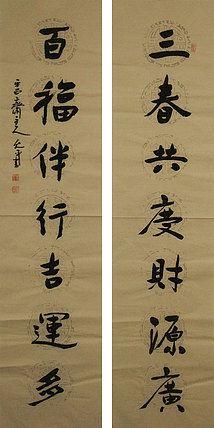 三春共慶財源廣
百福伴行吉運多